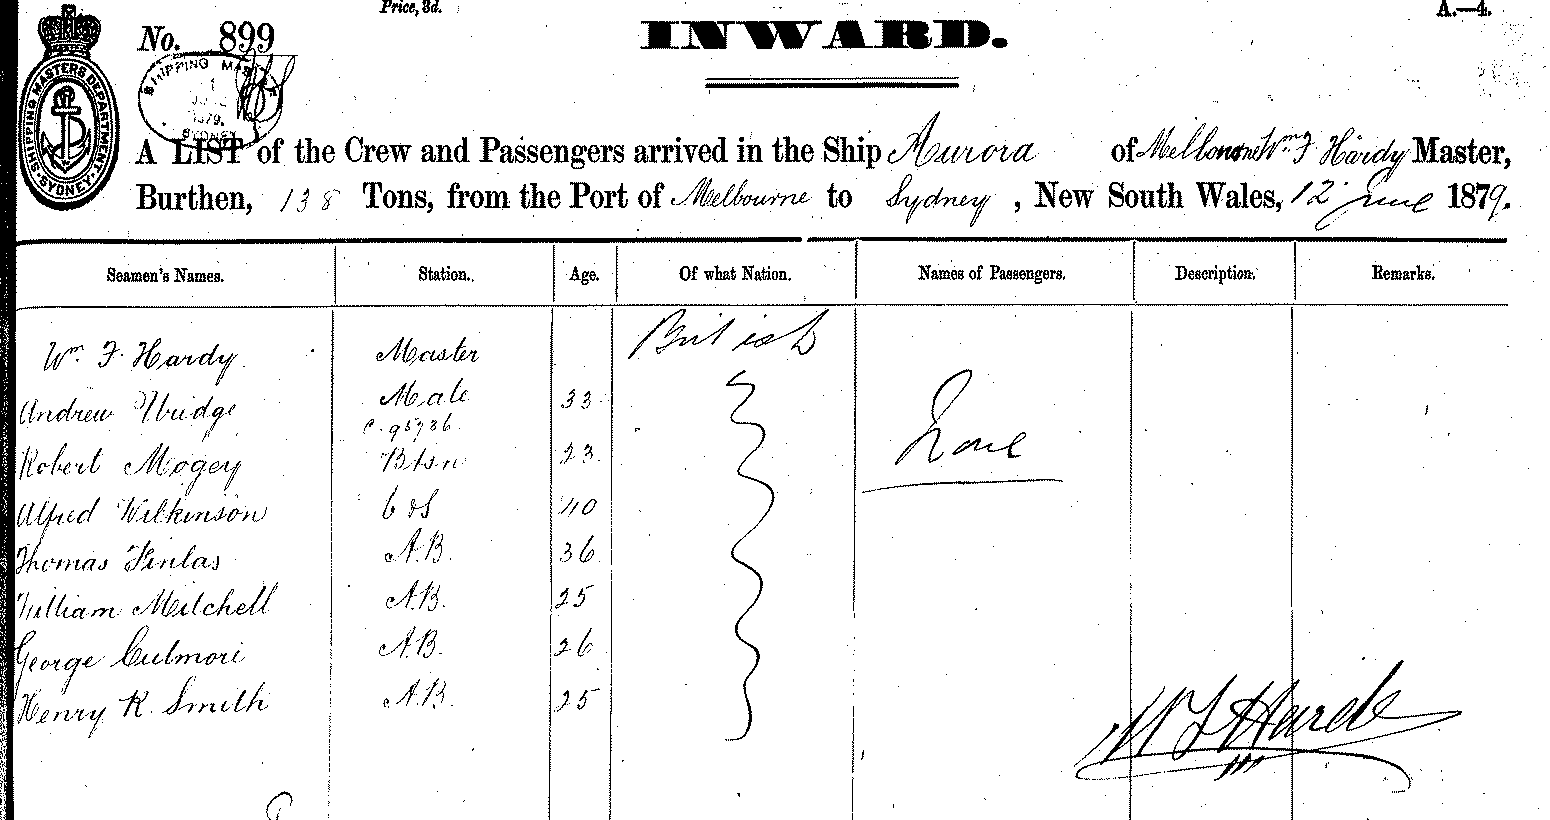 Price, 3d.
A.—4.
No. 899
INWARD.
SHIPPING MASTER
1879.
SYDNEY
SHIPPING MASTERS DEPARTMENT
SYDNEY
A LIST of the Crew and Passengers arrived in the Ship Aurora of Melbourne Wm. F Hardy Master,
Burthen, 138 Tons, from the Port of Melbourne to Sydney, New South Wales, 12 June 1879.
Seamen's Names. Station. Age. Of what Nation. Names of Passengers. Description. Remarks.
Wm. F. Hardy Master British
Andrew Mate 33
C. 95736
Robert Mogey Btsn 23 None
Alfred Wilkinson C & S 40
Thomas Finlas A.B. 36
William Mitchell A.B. 25
George Culmore A.B. 26
Henry R. Smith A.B. 25